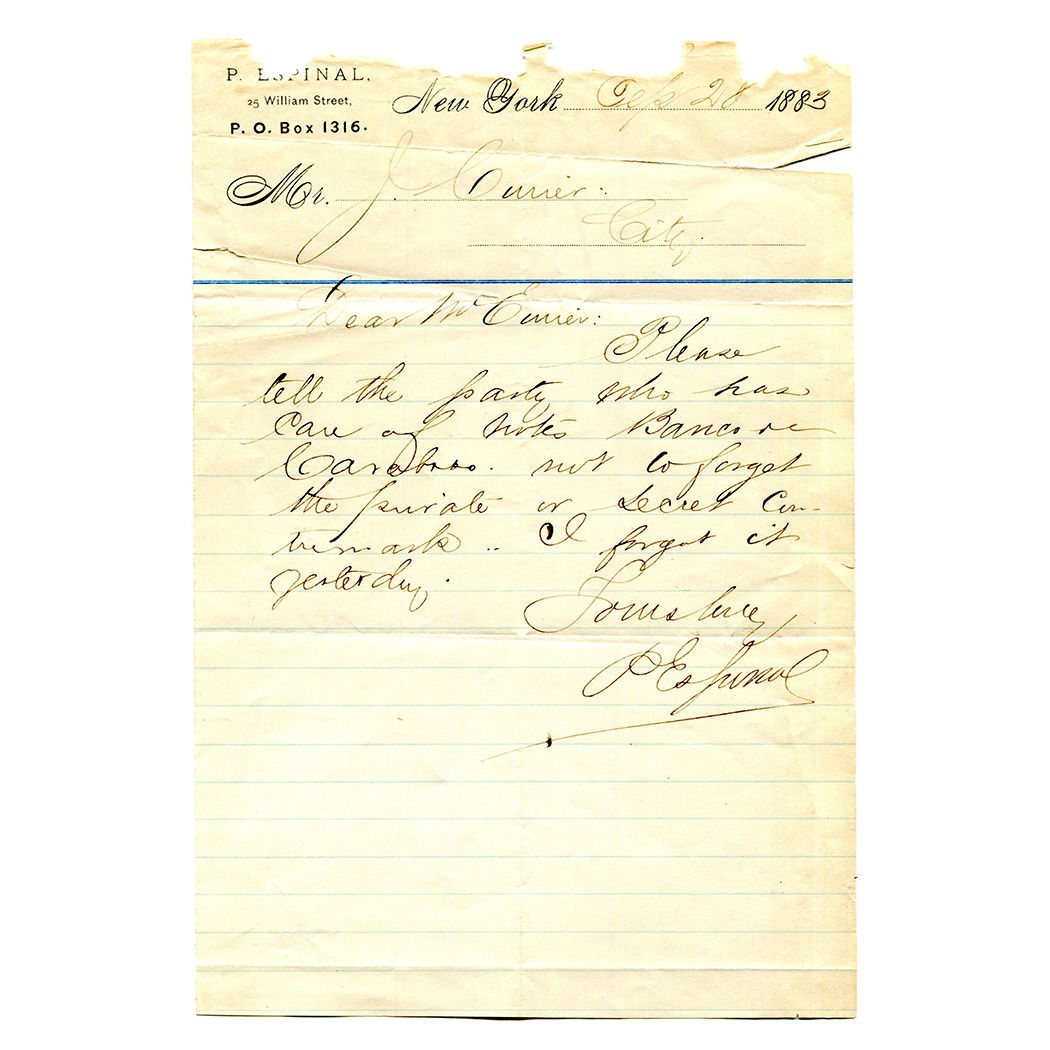 P. ESPINAL.
25 William Street,
P. O. Box 1316.
New York Sep 28 1883
Mr. J. Currier:
City.
Dear Mr Currier:
Please
tell the party who has
care of notes Banco de
Carabobo. not to forget
the private or secret con-
tremark .. I forgot it
yesterday.
Yours truly
P Espinal